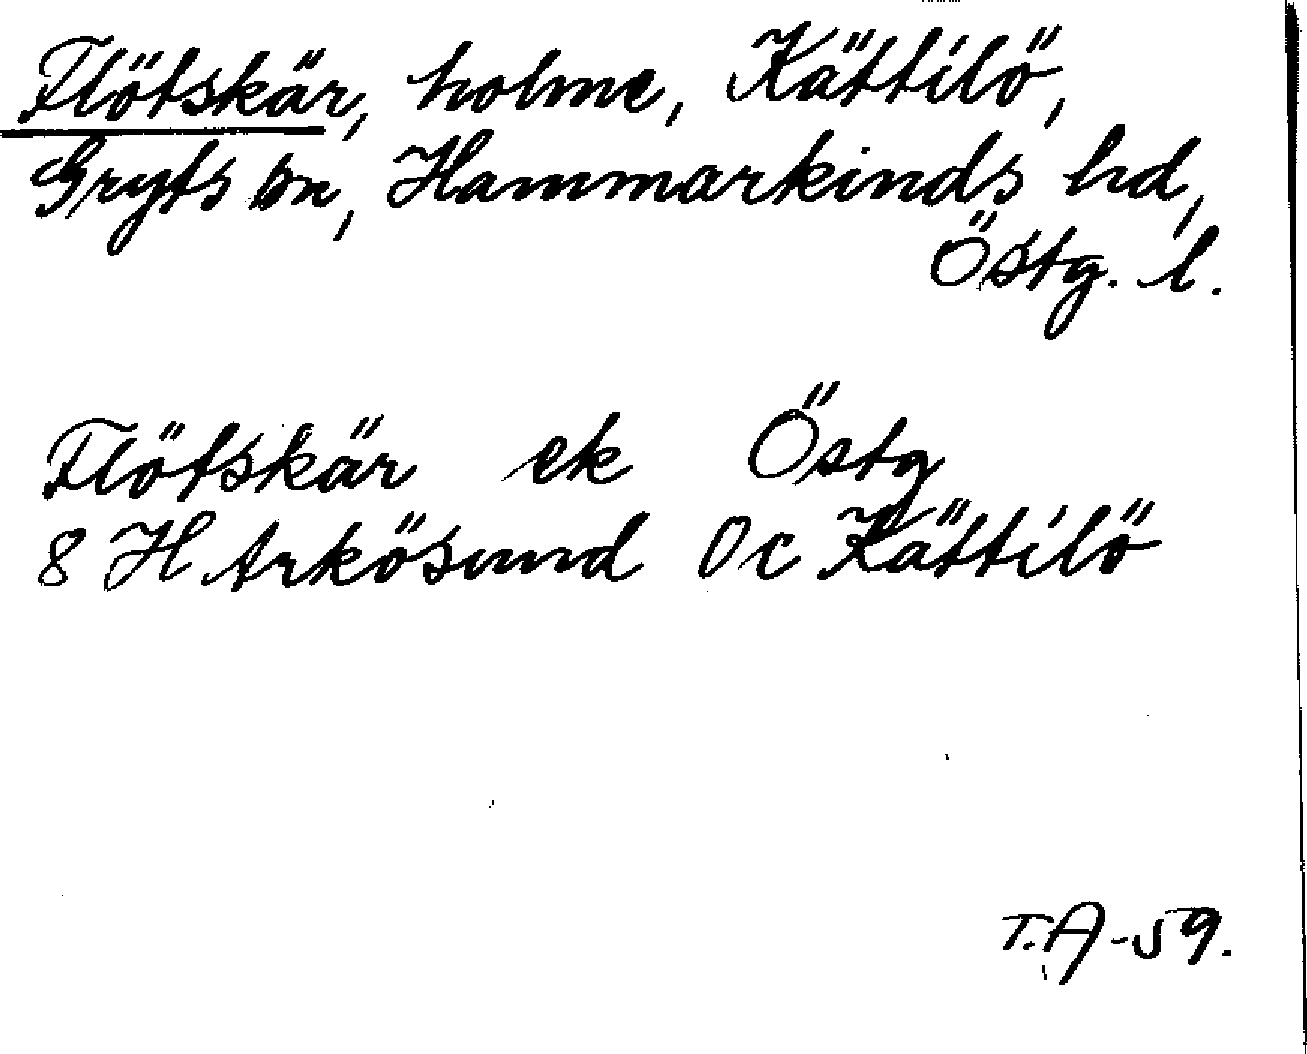 Flötskär, holme, Kättilö,
Gryts sn, Hammarkinds hd,
Östg. l.
Flötskär ek Östg
8 H Arkösund 0c Kättilö
T.A-59.